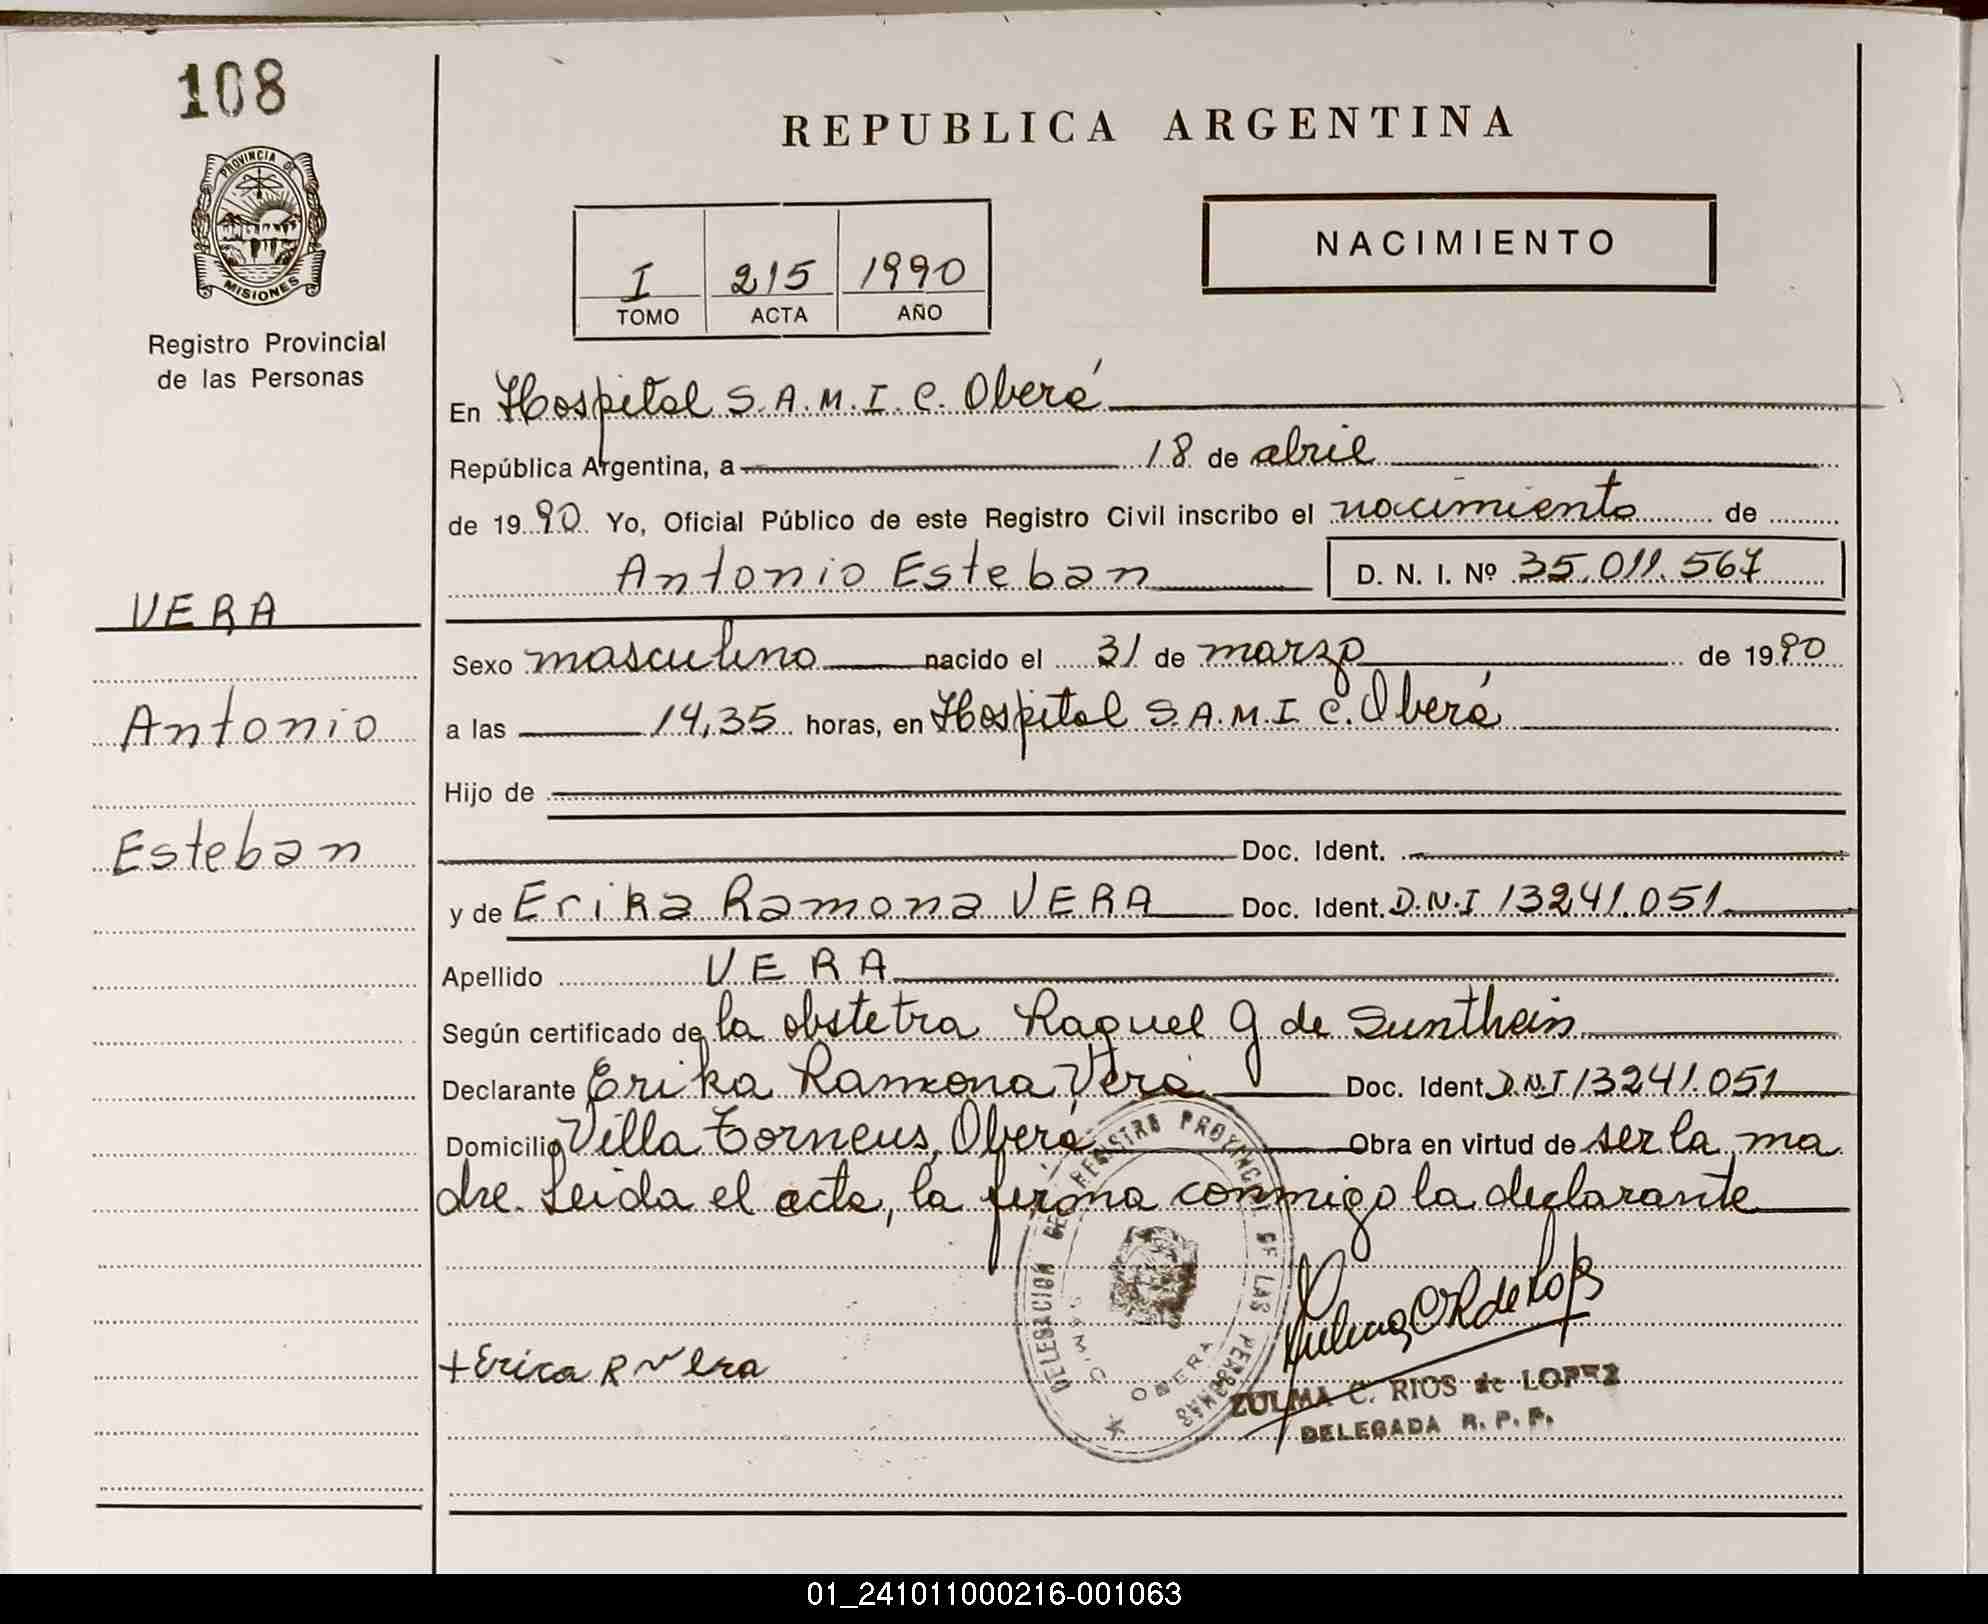 108
PROVINCIA DE
MISIONES
Registro Provincial
de las Personas
REPUBLICA ARGENTINA
I 215 1990
TOMO ACTA AÑO
NACIMIENTO
En Hospital S.A.M.I.C. Oberá
República Argentina, a 18 de abril
de 1990 Yo, Oficial Público de este Registro Civil inscribo el nacimiento de
Antonio Esteban D. N. I. Nº 35.011.567
VERA
Antonio
Esteban
Sexo masculino nacido el 31 de marzo de 1990
a las 14,35 horas, en Hospital S.A.M.I C. Oberá
Hijo de
Doc. Ident.
y de Erika Ramona VERA Doc. Ident. D.N.I 13241.051
Apellido VERA
Según certificado de la obstetra Raquel G de Sunthein
Declarante Erika Ramona Vera Doc. Ident. D.N.I 13241.051
Domicilio Villa Torneus, Oberá Obra en virtud de ser la ma
dre. Leida el acta, la firma conmigo la declarante
DELEGACION DEL REGISTRO PROVINCIAL DE LAS PERSONAS
SAMIC OBERA
+Erica R Vera
ZULMA C. RIOS de LOPEZ
DELEGADA R. P. P.
01_241011000216-001063